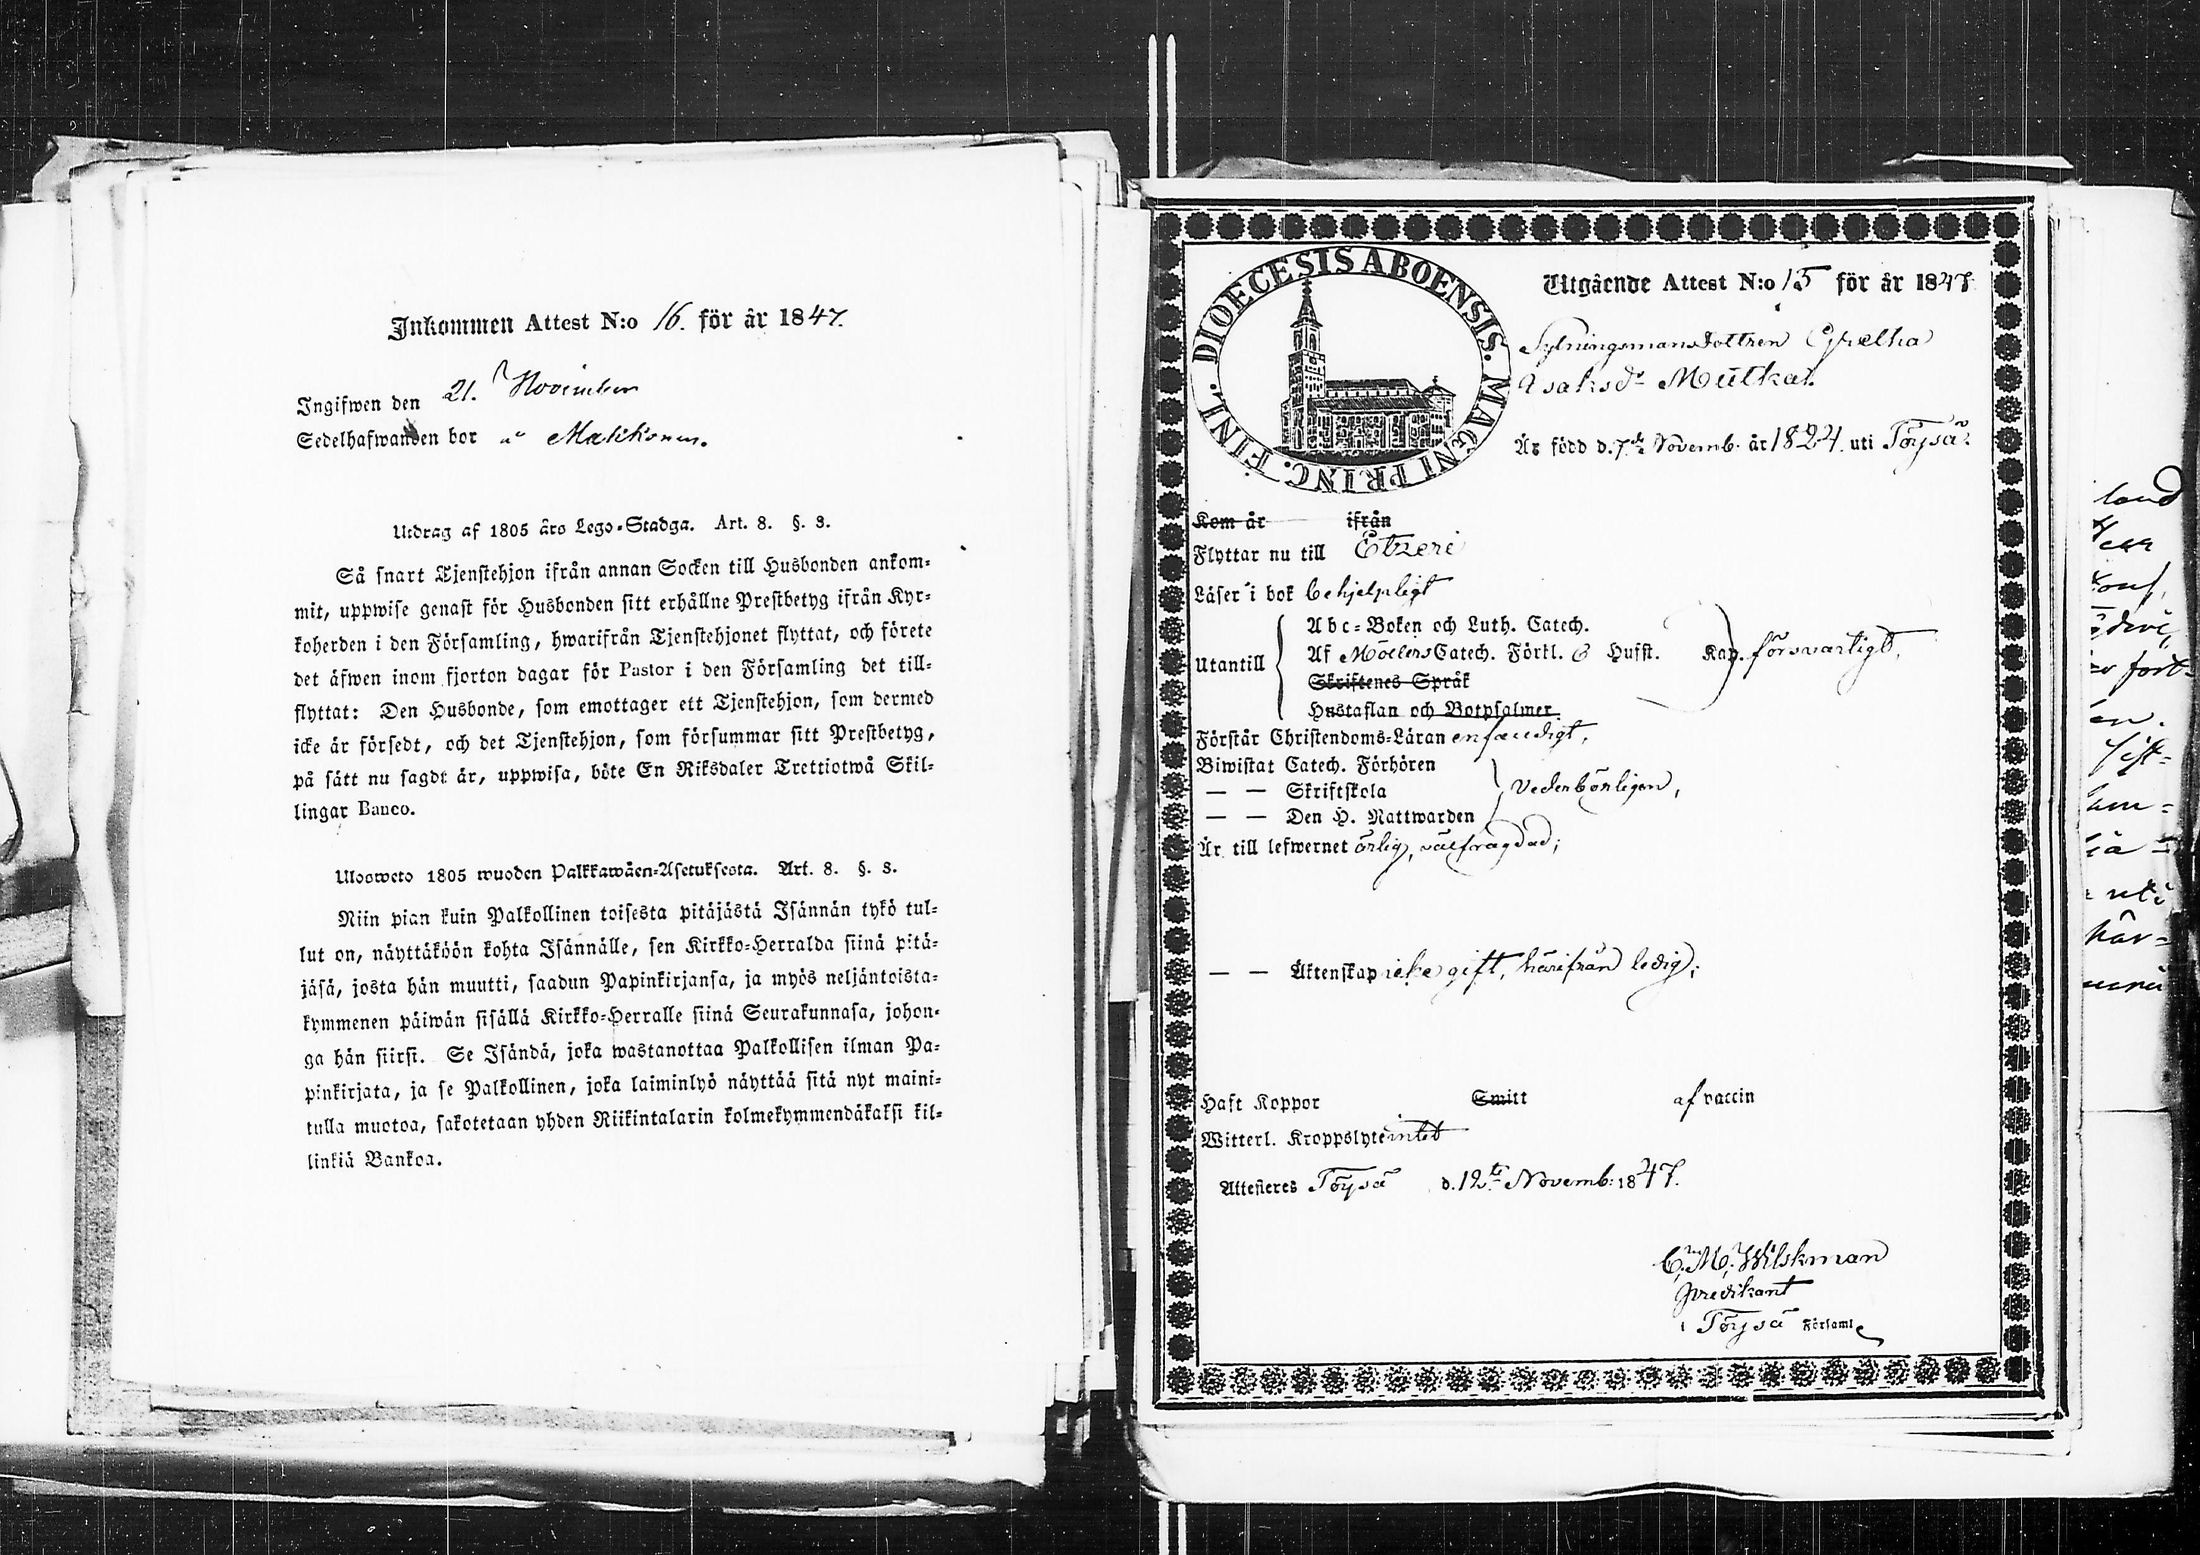 Inkommen Attest N:o 16. för år 1847.
Ingifwen den 21. November
Sedelhafwanden bor å Makkonen.
Utdrag af 1805 års Lego-Stadga. Art. 8. §. 3.
Så snart Tjenstehjon ifrån annan Socken till Husbonden ankom-
mit, uppwise genast för Husbonden sitt erhållne Prestbetyg ifrån Kyr-
koherden i den Församling, hwarifrån Tjenstehjonet flyttat, och förete
det äfwen inom fjorton dagar för Pastor i den Församling det till-
flyttat: Den Husbonde, som emottager ett Tjenstehjon, som dermed
icke är försedt, och det Tjenstehjon, som försummar sitt Prestbetyg,
på sätt nu sagdt är, uppwisa, böte En Riksdaler Trettiotwå Skil-
lingar Banco.
Ulosweto 1805 wuoden Palkkawäen-Asetuksesta. Art. 8. §. 3.
Niin pian kuin Palkollinen toisesta pitäjästä Isännän tykö tul-
lut on, näyttäköön kohta Isännälle, sen Kirkko-Herralda siinä pitä-
jäsä, josta hän muutti, saadun Papinkirjansa, ja myös neljäntoista-
kymmenen päiwän sisällä Kirkko-Herralle siinä Seurakunnasa, johon-
ga hän siirsi. Se Isändä, joka wastanottaa Palkollisen ilman Pa-
pinkirjata, ja se Palkollinen, joka laiminlyö näyttää sitä nyt maini-
tulla muotoa, sakotetaan yhden Riikintalarin kolmekymmendäkaksi kil-
linkiä Bankoa.
DIOECESIS ABOENSIS. MAGNI PRINC. FINL.
Utgående Attest N:o 15 för år 1847.
Sytningsmansdottren Gretha
Isaksdr Mutka.
Är född d. 7de Novemb. år 1824. uti Töysä.
Kom år ifrån
Flyttar nu till Etzeri
Läser i bok behjelpligt
Abc-Boken och Luth. Catech.
Utantill Af Möllers Catech. Förkl. & Hust. Kap. försvarligt,
Skriftenes Språk
Hustaflan och Botpsalmer.
Förstår Christendoms-Läran enfaldigt,
Biwistat Catech. Förhören
— — Skriftskola vederbörligen,
— — Den H. Nattwarden
Är till lefwernet ärlig, välfrägdad;
— — Äktenskap icke gift, härifrån ledig;
Haft Koppor Smitt af vaccin
Witterl. Kroppslyte intet
Attesteres Töysä d. 12te Novemb: 1847.
C. M. Wilskman
Predikant
i Töysä Församl
land